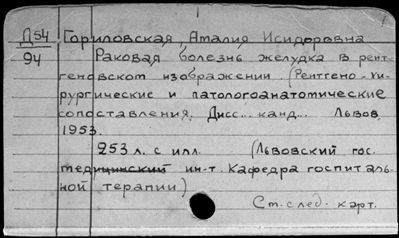 Д54 Гориловская, Аталия Исидоровна
94 Раковая болезнь желудка в рент-
геновском изображении. (Рентгено-хи-
рургические и патологоанатомические
сопоставления. Дисс... канд... Львов,
1953.
253 л. с илл. (Львовский гос.
медицинский ин-т. Кафедра госпиталь-
ной терапии)
См. след. карт.